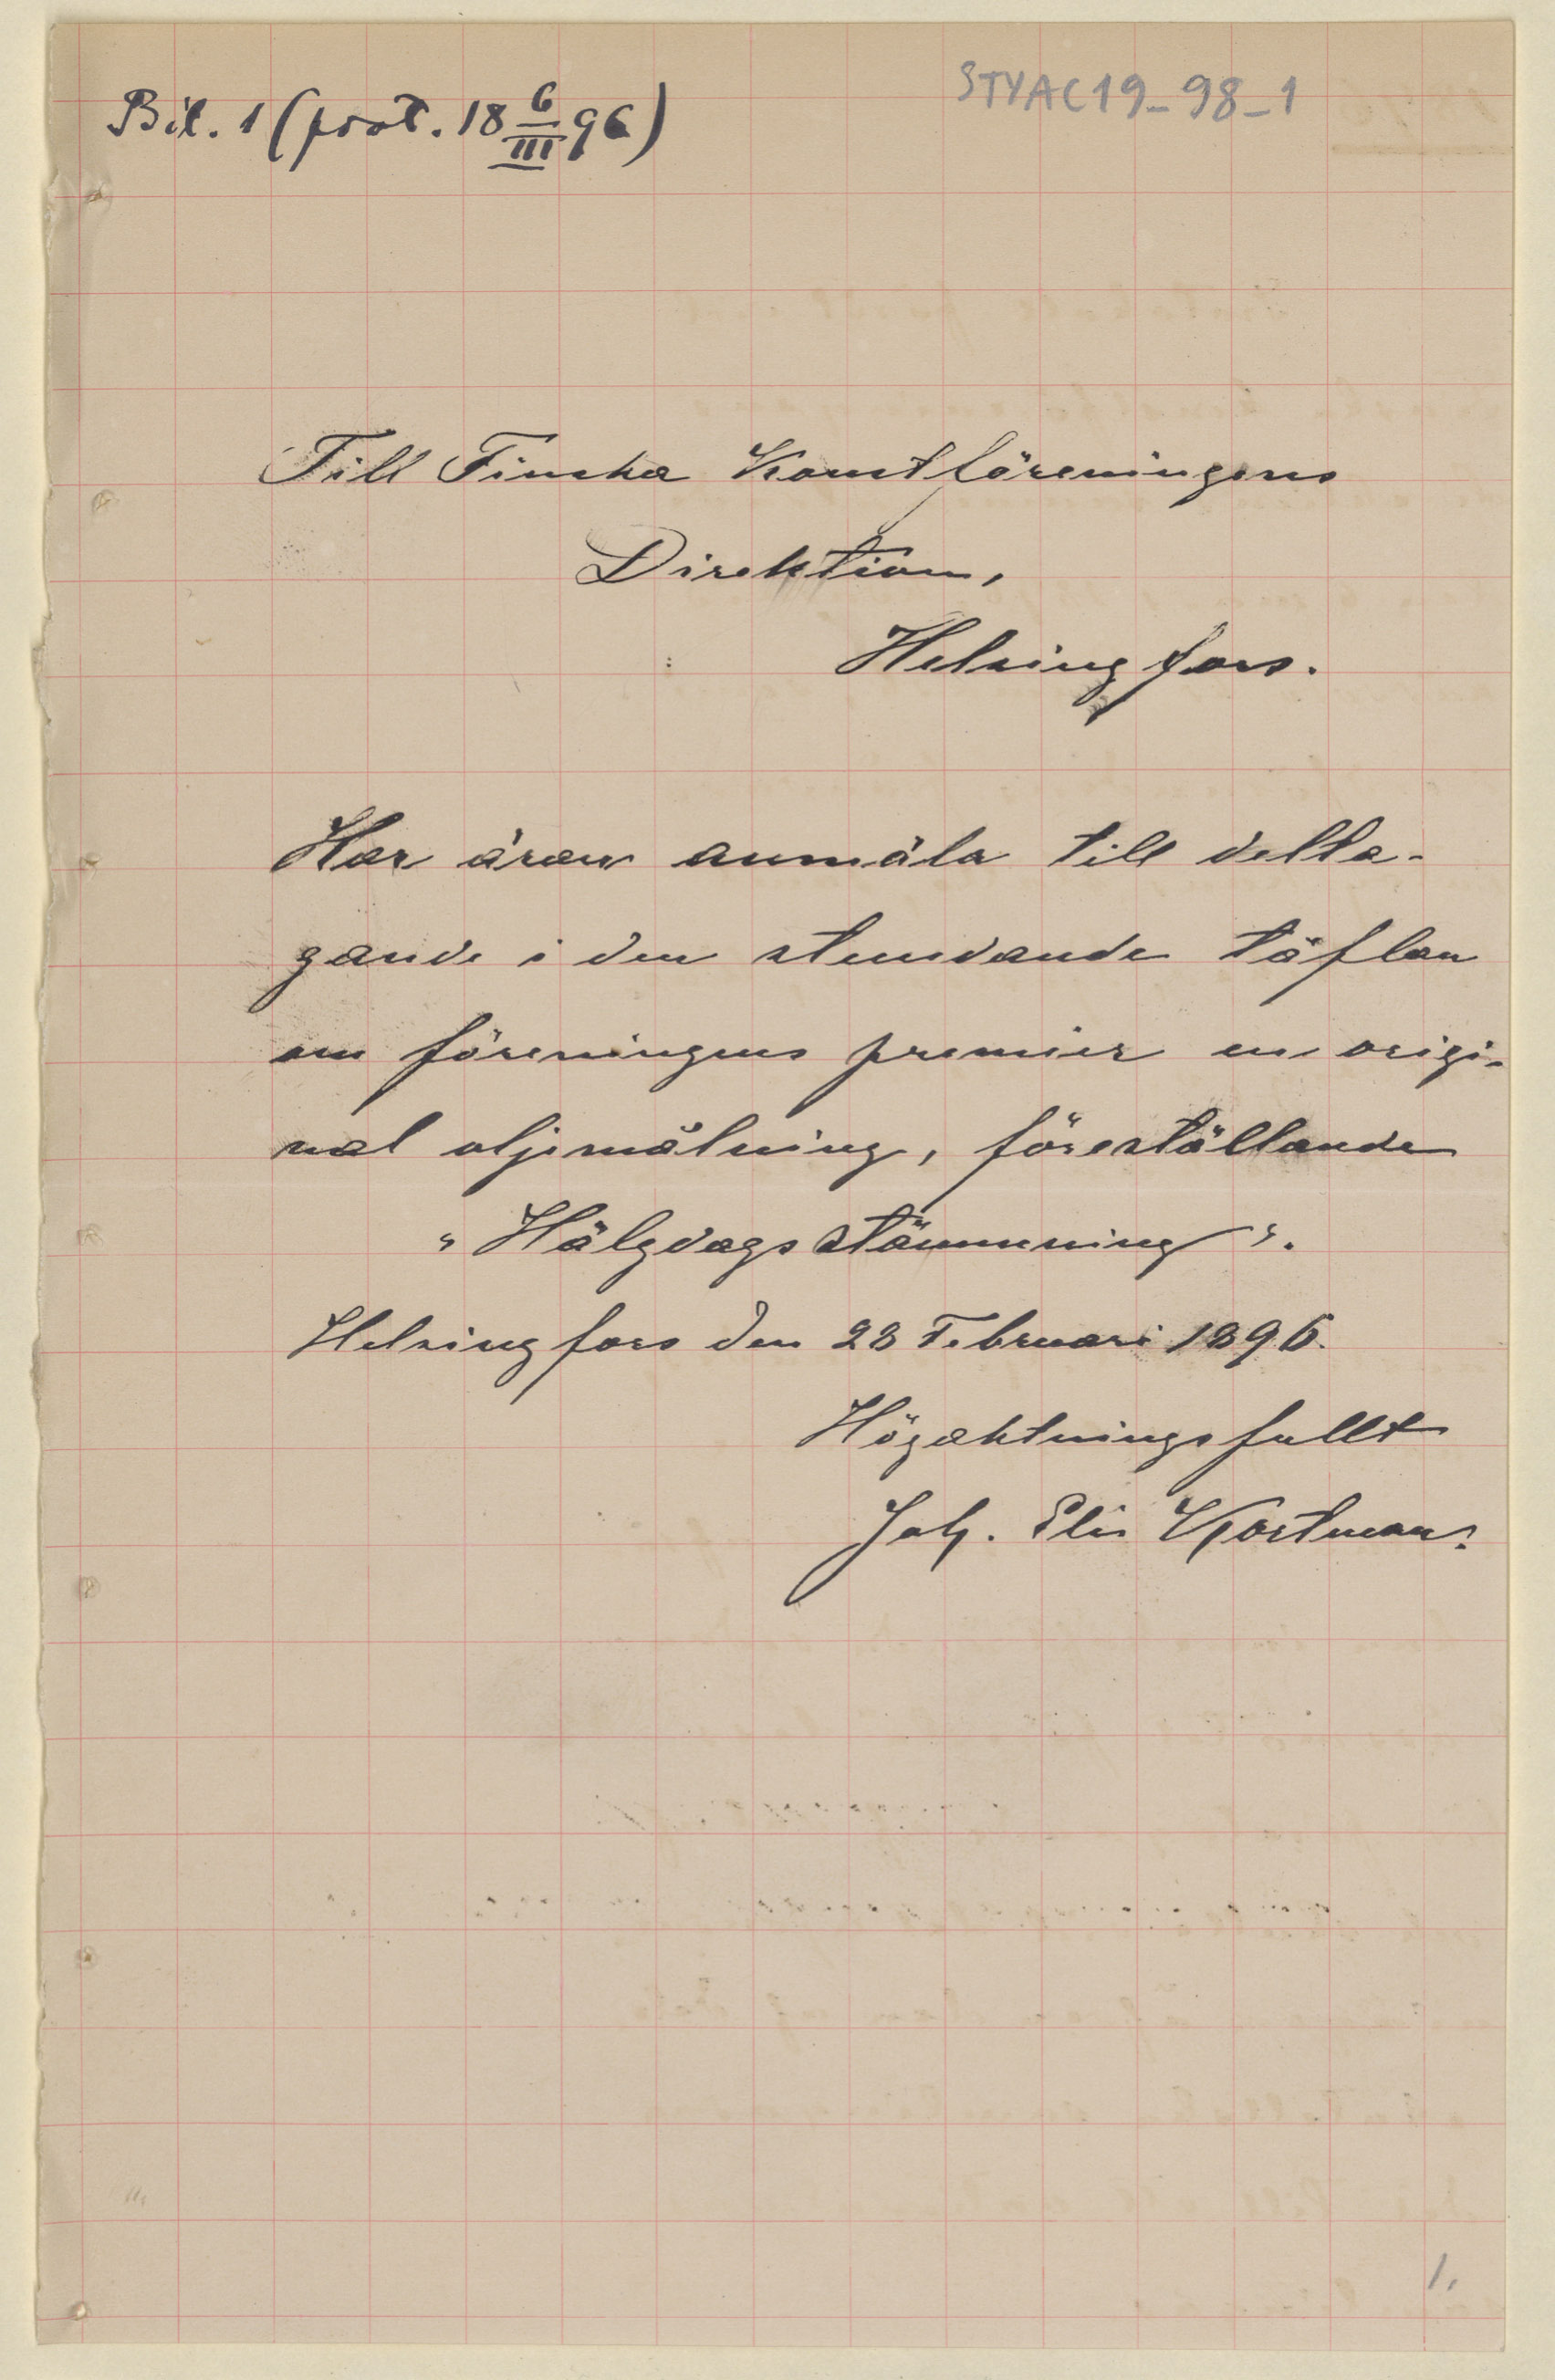 Bil. 1 (prot. 18 6/III 96)
STYAC19-98-1
Till Finska Konstföreningens
Direktion,
Helsingfors.
Har äran anmäla till delta-
gande i den stundande täflan
om föreningens premier en origi-
nal oljemålning, föreställande
"Hälgdagsstämmning".
Helsingfors den 28 Februari 1896.
Högaktningsfullt
Joh. Elis Kortman.
1.